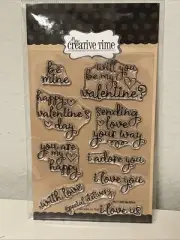 the
creative time
be
mine
will you
be my
valentine?
happy
valentine's
day
sending
love
your way
you are
my
happy
i adore you
i love you
with love
special delivery
i love us